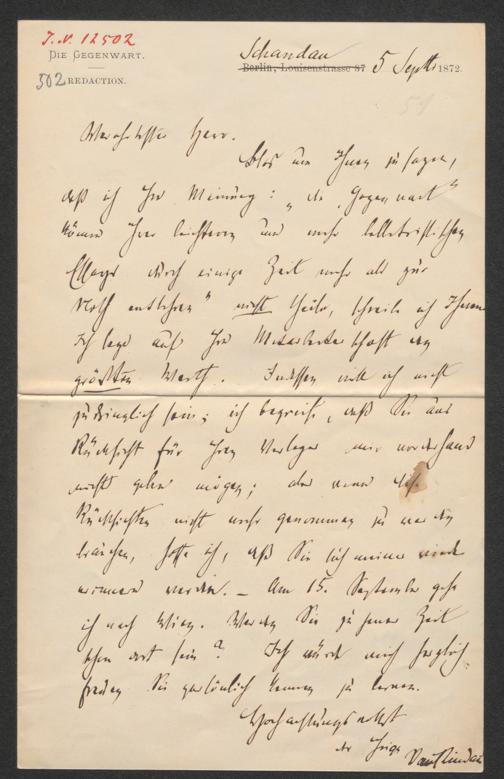 I. N. 12502
DIE GEGENWART.
502 REDACTION.
Schandau
Berlin, Louisenstrasse 87 5 Sept 1872.
51
Verehrtester Herr.
Blos um Ihnen zu sagen,
daß ich Ihre Meinung: „die „Gegenwart“
könne Ihrer leichteren und mehr belletristischen
Essays durch einige Zeit mehr als zur
Noth entbehren“ nicht theile, schreibe ich Ihnen
Ich lege auf Ihre Mitarbeiterschaft den
größten Werth. Indessen will ich nicht
zudringlich sein; ich begreife, daß Sie aus
Rücksicht für Ihren Verleger mir vorderhand
nicht geben mögen; aber wenn diese
Rücksichten nicht mehr genommen zu werden
brauchen, hoffe ich, daß Sie sich meiner wieder
erinnern werden. – Am 15. September gehe
ich nach Wien. Werden Sie zu jener Zeit
schon dort sein? Ich würde mich herzlich
freuen Sie persönlich kennen zu lernen.
Hochachtungsvollst
der Ihrige
Paul Lindau